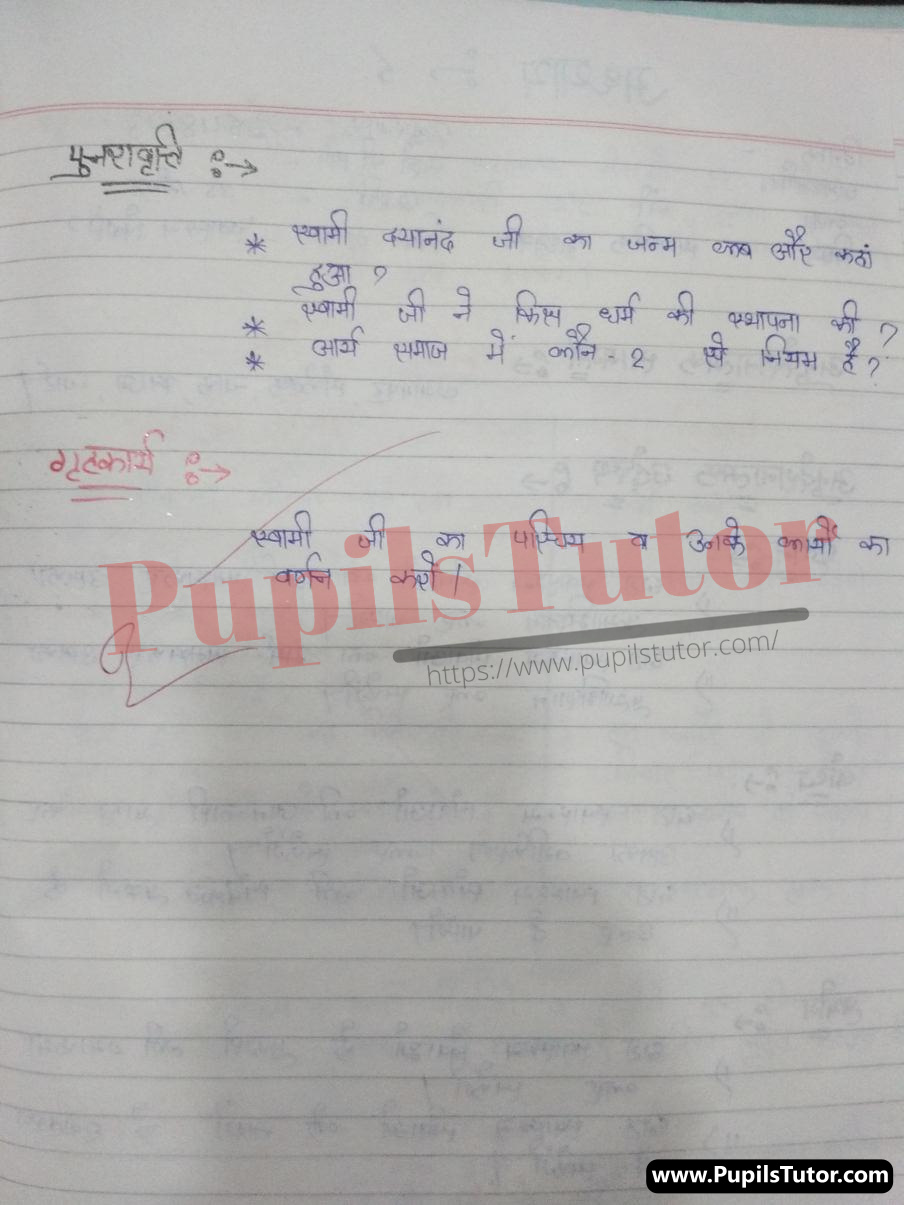 पुनरावृत्ति :→
* स्वामी दयानंद जी का जन्म कब और कहां
हुआ ?
* स्वामी जी ने किस धर्म की स्थापना की ?
* आर्य समाज में कौन-2 से नियम है ?
गृहकार्य :→
स्वामी जी का परिचय व उनके कार्यों का
वर्णन करो ।
PupilsTutor
https://www.pupilstutor.com/
www.PupilsTutor.com